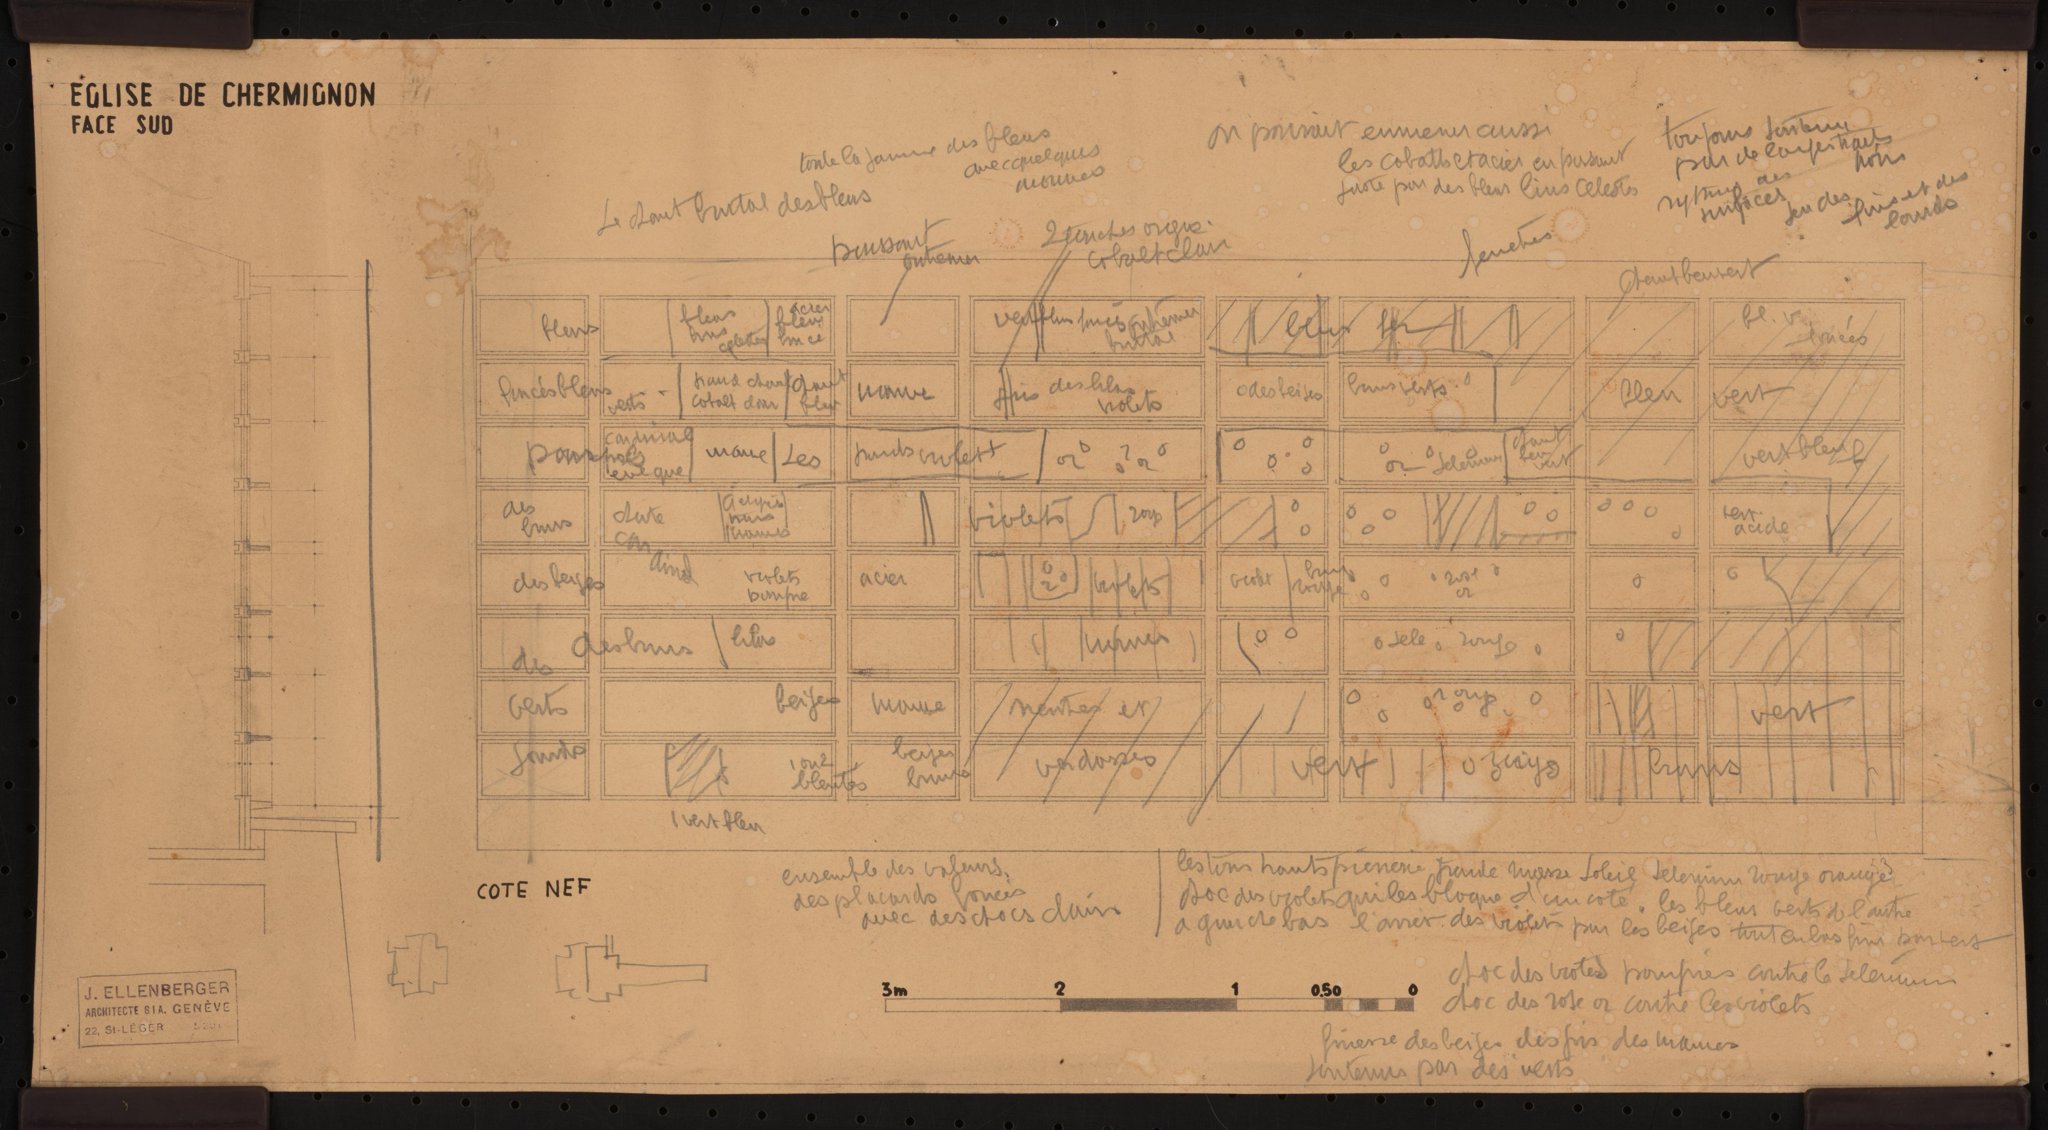 EGLISE DE CHERMIGNON
FACE SUD
toute la gamme des bleus
avec quelques
mauves
Le chant brutal des bleus
on pourrait emmener aussi
les cobalts et acier en passant
suite par des bleus lins celestes
toujours soutenu
par de larges traits
noirs
rythme des
surfaces
jeu des fins et des
lourds
passant
outremer
cobalt clair
chant bleu vert
bleus
bleus
acier
bleu
vert
bleus foncés
outremer
brutal
bleus
bl. v.
foncés
foncés bleus
verts
grand chant
cobalt clair
chant
bleu
mauve
gris des lilas
violets
o des beiges
bruns verts
bleu
vert
cardinal
évêque
mauve
Les
grands violets
or
or
or
selenium
chant
bleu
vert
vert bleus
des
bruns
violets
vert
acide
des beiges
violets
pourpre
acier
violets
violet
rose
or
des
des bruns
lilas
mauves
sele
rouge
verts
beiges
mauve
menthes et
vert
lourds
1 ou 2
bleutés
beiges
bruns
verdasses
vert
bruns
1 vert bleu
COTE NEF
ensemble des valeurs
des placards foncés
avec des chocs clairs
les tons hauts pierrerie grande masse soleil selenium rouge orangé
choc des violets qui les bloque d'un coté. les bleus verts de l'autre
a gauche bas l'arret des violets par les beiges tout en bas
choc des violets pourpres contre le selenium
choc des rose or contre les violets
finesse des beiges des gris des mauves
soutenus par des verts
3m 2 1 0.50 0
J. ELLENBERGER
ARCHITECTE SIA. GENÈVE
22, St-LÉGER